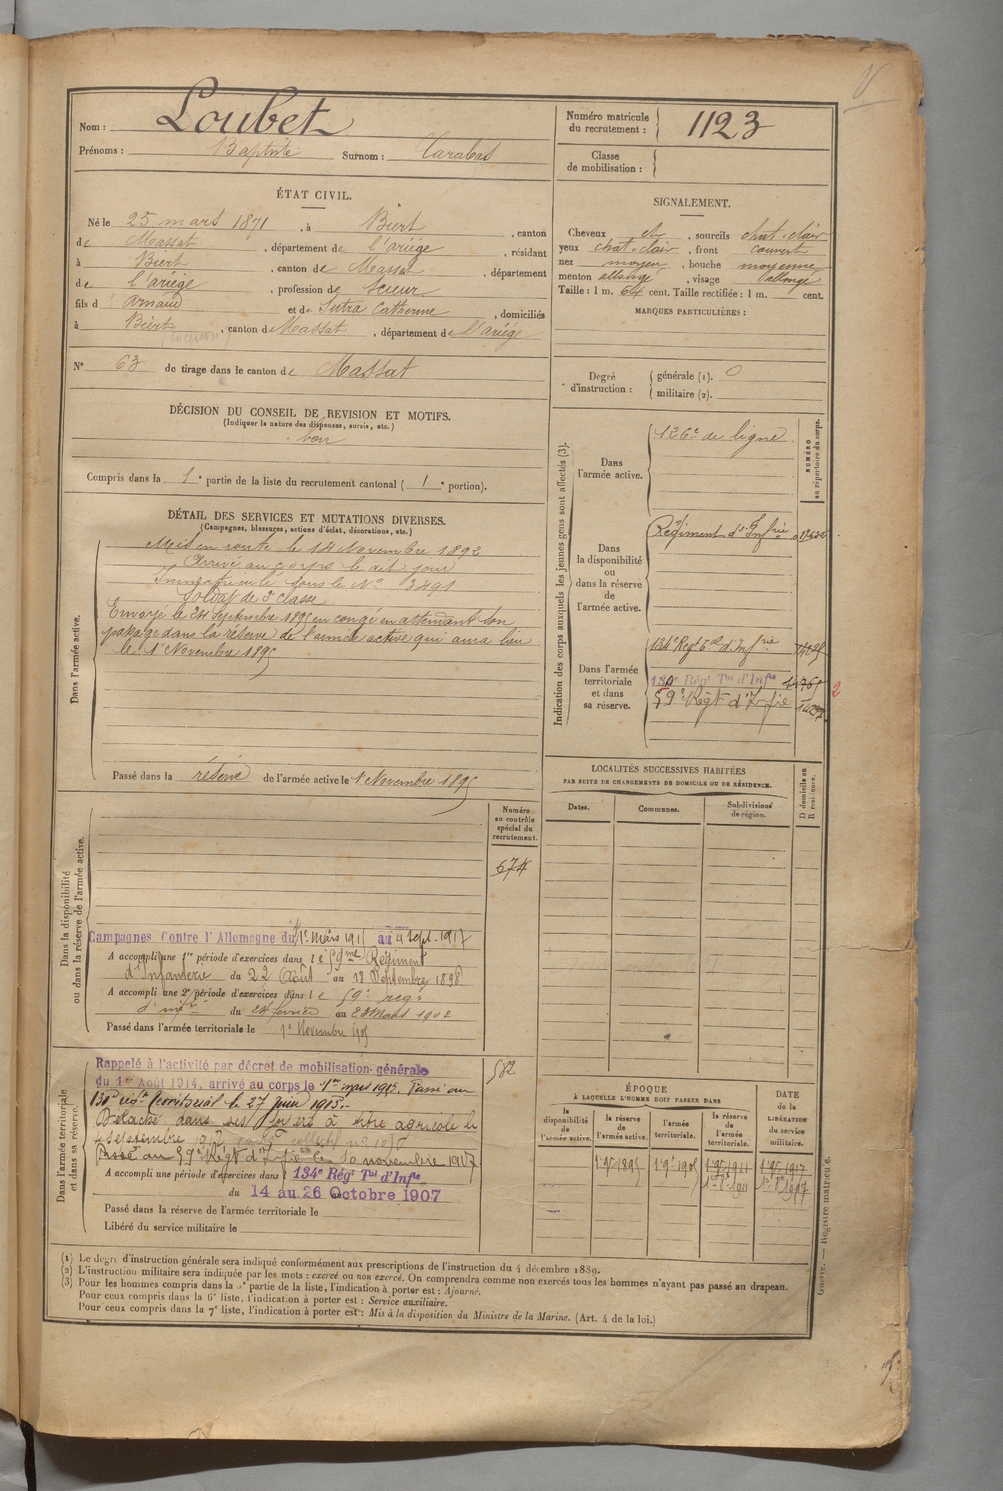 Nom : Loubet
Prénoms : Baptiste Surnom : Carabas
Numéro matricule
du recrutement : 1123
Classe
de mobilisation :
ÉTAT CIVIL.
Né le 25 mars 1871, à Biert, canton
de Massat, département de l'ariège, résidant
à Biert, canton de Massat, département
de l'ariège, profession de Scieur
fils d' Arnaud et de Sutra Catherine, domiciliés
à Biert, canton de Massat, département de l'ariège
N° 63 de tirage dans le canton de Massat
DÉCISION DU CONSEIL DE REVISION ET MOTIFS.
(Indiquer la nature des dispenses, sursis, etc.)
bon
Compris dans la 1e partie de la liste du recrutement cantonal ( 1e portion).
DÉTAIL DES SERVICES ET MUTATIONS DIVERSES.
(Campagnes, blessures, actions d'éclat, décorations, etc.)
Dans l'armée active.
Mis en route le 14 Novembre 1892
Arrivé au corps le dit jour
Immatriculé sous le N° 3491
Soldat de 2e classe
Envoyé le 24 Septembre 1895 en congé en attendant son
passage dans la réserve de l'armée active qui aura lieu
le 1 Novembre 1895
Passé dans la réserve de l'armée active le 1 Novembre 1895
Dans la disponibilité
ou dans la réserve de l'armée active.
Numéro
au contrôle
spécial du
recrutement.
674
Campagnes Contre l'Allemagne du 1er Mars 1915 au 4 Sept. 1917
A accompli une 1re période d'exercices dans le 59me Régiment
d'Infanterie du 22 Août au 18 Septembre 1898
A accompli une 2e période d'exercices dans le 59e reg.
d'inf.rie du 24 février au 23 Mars 1902
Passé dans l'armée territoriale le 1er Novembre 1905
Dans l'armée territoriale
et dans sa réserve.
582
Rappelé à l'activité par décret de mobilisation générale
du 1er Août 1914, arrivé au corps le 1er mars 1915. Passé au
130e rég.t territorial le 27 Juin 1915.
Détaché dans ses foyers à titre agricole le
4 septembre 1917
Passé au 59e Régt d'Infie le 10 novembre 1917
A accompli une période d'exercices dans l 134e Régt Tal d'Infie
du 14 au 26 Octobre 1907
Passé dans la réserve de l'armée territoriale le
Libéré du service militaire le
SIGNALEMENT.
Cheveux et, sourcils chat-clair
yeux chat-clair, front couvert
nez moyen, bouche moyenne
menton allongé, visage allongé
Taille : 1 m. 64 cent. Taille rectifiée : 1 m. cent.
MARQUES PARTICULIÈRES :
Degré
d'instruction : générale (1). 0
militaire (2).
Indication des corps auxquels les jeunes gens sont affectés (3).
NUMÉRO
au répertoire du corps.
Dans
l'armée active.
126e de ligne
Dans
la disponibilité
ou
dans la réserve
de
l'armée active.
Régiment d'Infrie
Dans l'armée
territoriale
et dans
sa réserve.
134e Regt Tal d'Infrie
130e Régt Tal d'Infie
59e Régt d'Infie
2
LOCALITÉS SUCCESSIVES HABITÉES
PAR SUITE DE CHANGEMENTS DE DOMICILE OU DE RÉSIDENCE.
Dates.
Communes.
Subdivisions
de région.
D domicile ou
R résidence.
ÉPOQUE
À LAQUELLE L'HOMME DOIT PASSER DANS
la
disponibilité
de
l'armée active.
la réserve
de
l'armée active.
l'armée
territoriale.
la réserve
de
l'armée
territoriale.
DATE
de la
LIBÉRATION
du service
militaire.
1er 9bre 1895 1er 9bre 1905 1er 9bre 1911 1er 9bre 1917
1er 8bre 1911 1er 8bre 1917
(1) Le degré d'instruction générale sera indiqué conformément aux prescriptions de l'instruction du 4 décembre 1889.
(2) L'instruction militaire sera indiquée par les mots : exercé ou non exercé. On comprendra comme non exercés tous les hommes n'ayant pas passé au drapeau.
(3) Pour les hommes compris dans la 2e partie de la liste, l'indication à porter est : Ajourné.
Pour ceux compris dans la 6e liste, l'indication à porter est : Service auxiliaire.
Pour ceux compris dans la 7e liste, l'indication à porter est : Mis à la disposition du Ministre de la Marine. (Art. 4 de la loi.)
Guerre. — Registre matricule.